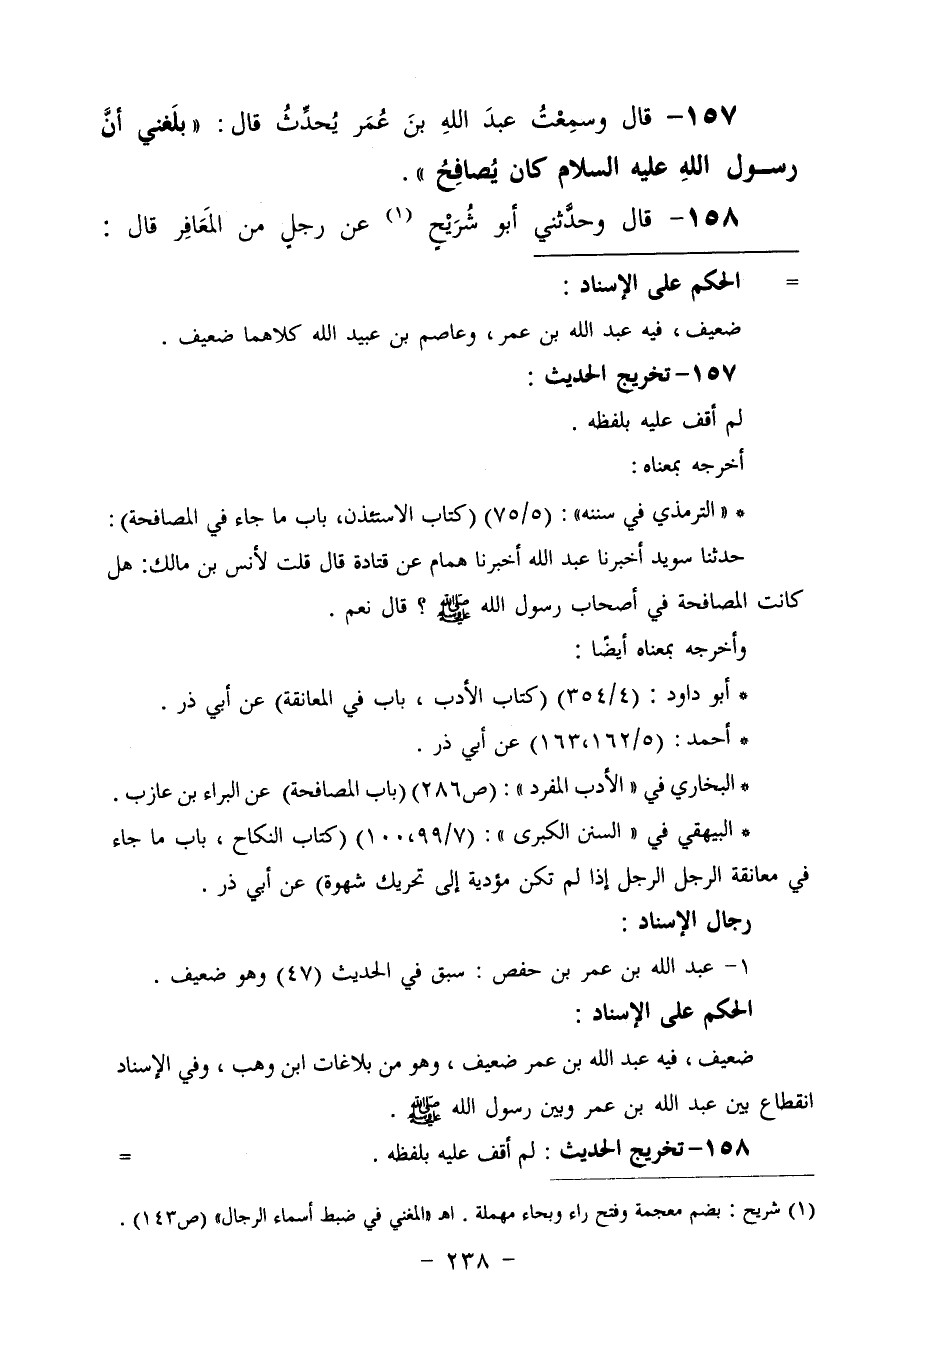 ١٥٧- قال وسمِعْتُ عبدَ اللهِ بنَ عُمَر يُحدِّثُ قال : « بلَغني أنَّ
رسـول اللهِ عليه السلام كان يُصافِحُ » .
١٥٨- قال وحدَّثني أبو شُرَيْحٍ (١) عن رجلٍ من المَعَافِر قال :
= الحكم على الإسناد :
ضعيف ، فيه عبد الله بن عمر ، وعاصم بن عبيد الله كلاهما ضعيف .
١٥٧- تخريج الحديث :
لم أقف عليه بلفظه .
أخرجه بمعناه :
* « الترمذي في سننه» : (٧٥/٥) (كتاب الاستئذن، باب ما جاء في المصافحة) :
حدثنا سويد أخبرنا عبد الله أخبرنا همام عن قتادة قال قلت لأنس بن مالك: هل
كانت المصافحة في أصحاب رسول الله ﷺ ؟ قال نعم .
وأخرجه بمعناه أيضًا :
* أبو داود : (٣٥٤/٤) (كتاب الأدب ، باب في المعانقة) عن أبي ذر .
* أحمد : (١٦٣،١٦٢/٥) عن أبي ذر .
* البخاري في « الأدب المفرد » : (ص٢٨٦) (باب المصافحة) عن البراء بن عازب .
* البيهقي في « السنن الكبرى » : (١٠٠،٩٩/٧) (كتاب النكاح ، باب ما جاء
في معانقة الرجل الرجل إذا لم تكن مؤدية إلى تحريك شهوة) عن أبي ذر .
رجال الإسناد :
١- عبد الله بن عمر بن حفص : سبق في الحديث (٤٧) وهو ضعيف .
الحكم على الإسناد :
ضعيف ، فيه عبد الله بن عمر ضعيف ، وهو من بلاغات ابن وهب ، وفي الإسناد
انقطاع بين عبد الله بن عمر وبين رسول الله ﷺ .
١٥٨- تخريج الحديث : لم أقف عليه بلفظه . =
(١) شريح : بضم معجمة وفتح راء وبحاء مهملة . اهـ «المغني في ضبط أسماء الرجال» (ص١٤٣) .
- ٢٣٨ -